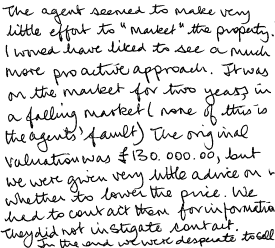 The agent seemed to make very
little effort to "market" the property.
I would have liked to see a much
more proactive approach. It was
on the market for two years in
a falling market (none of this is
the agents' fault) The original
valuation was £130.000.00, but
we were given very little advice on
whether to lower the price. We
had to contact them for information
They did not instigate contact.
In the end we were desperate to sell